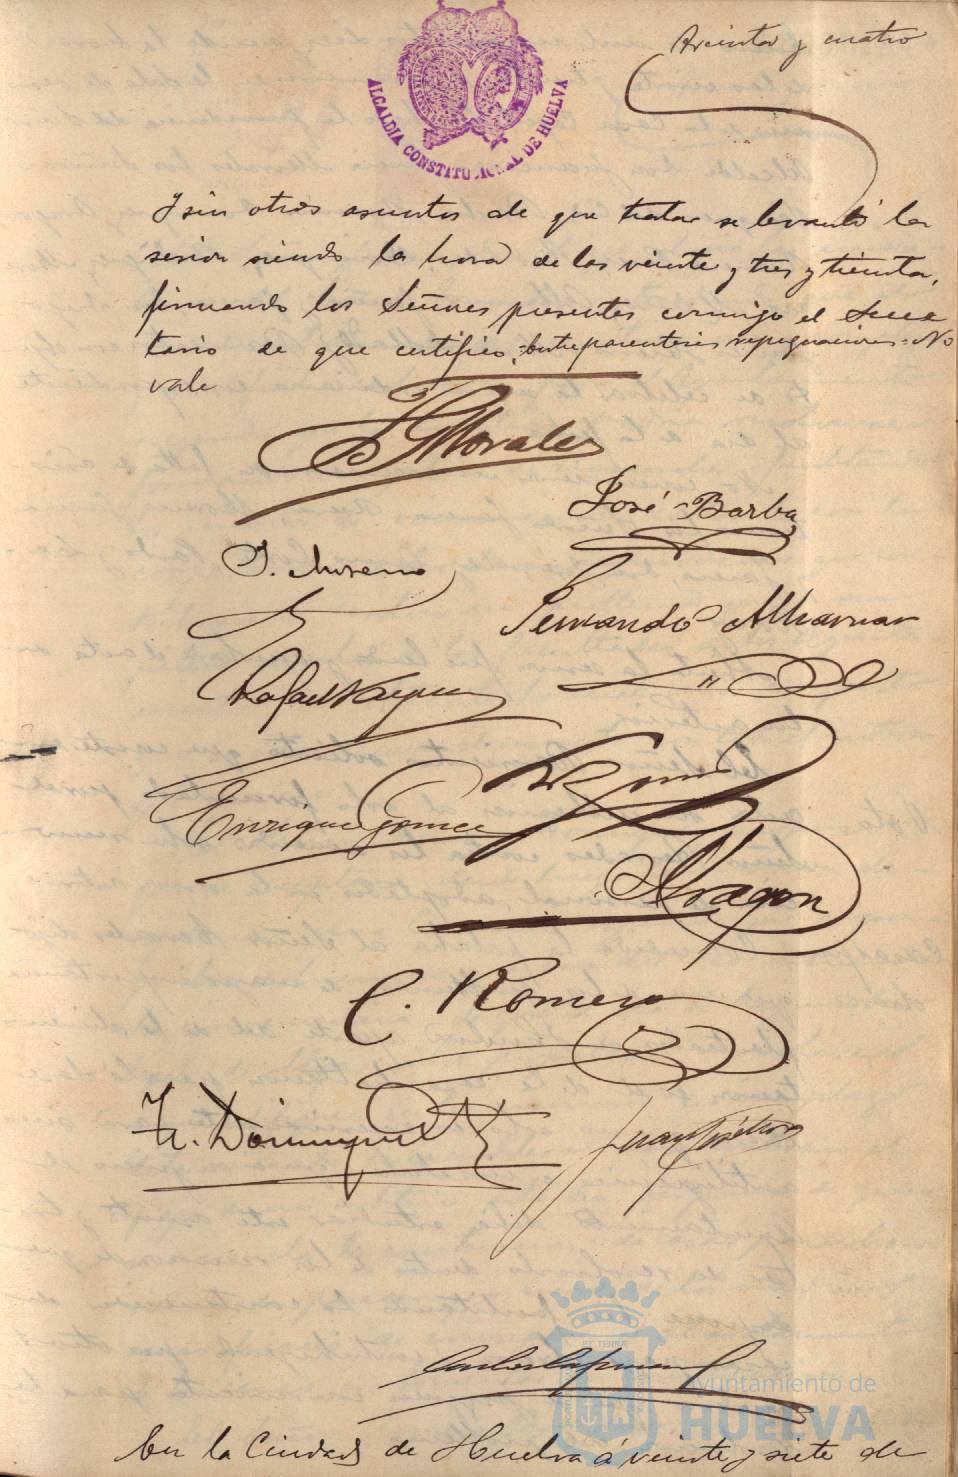 treinta y cuatro
ALCALDIA CONSTITUCIONAL DE HUELVA
Y sin otros asuntos de que tratar se levantó la
sesion siendo la hora de las veinte y tres y treinta,
firmando los Señores presentes conmigo el Secre
tario de que certifico. =Entre parentesis = No
vale
Morales
José Barba
J. Moreno
Servando
Rafael
Enrique Gomez
Aragon
C. Romero
Fr. Dominguez
Juan
Ayuntamiento de
HUELVA
En la Ciudad de Huelva á veinte y siete de